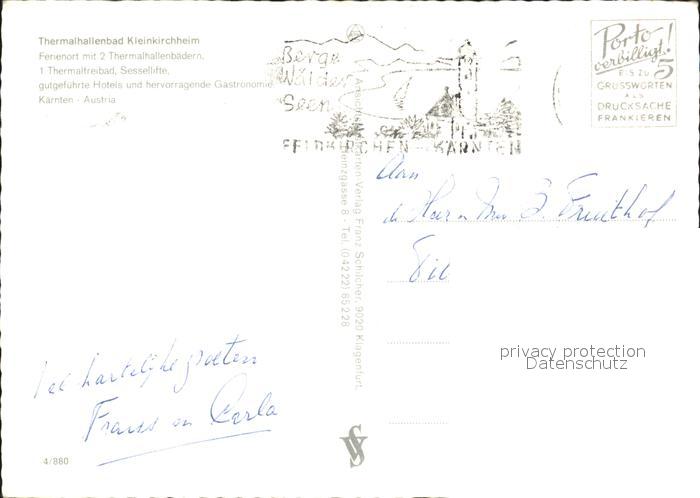 Thermalhallenbad Kleinkirchheim
Ferienort mit 2 Thermalhallenbädern,
1 Thermalfreibad, Sessellifte,
gutgeführte Hotels und hervorragende Gastronomie
Kärnten - Austria
Berge
Wälder
Seen
FELDKIRCHEN - KÄRNTEN
Porto
verbilligt!
BIS ZU 5
GRUSSWORTEN
ALS
DRUCKSACHE
FRANKIEREN
Ansichtskarten-Verlag Franz Schilcher, 9020 Klagenfurt,
gasse 8 - Tel. (0 42 22) 85 2 28
Aan
de Heer en Mevr
privacy protection
Datenschutz
Vel hartelijke groeten
Frans en Carla
4/880